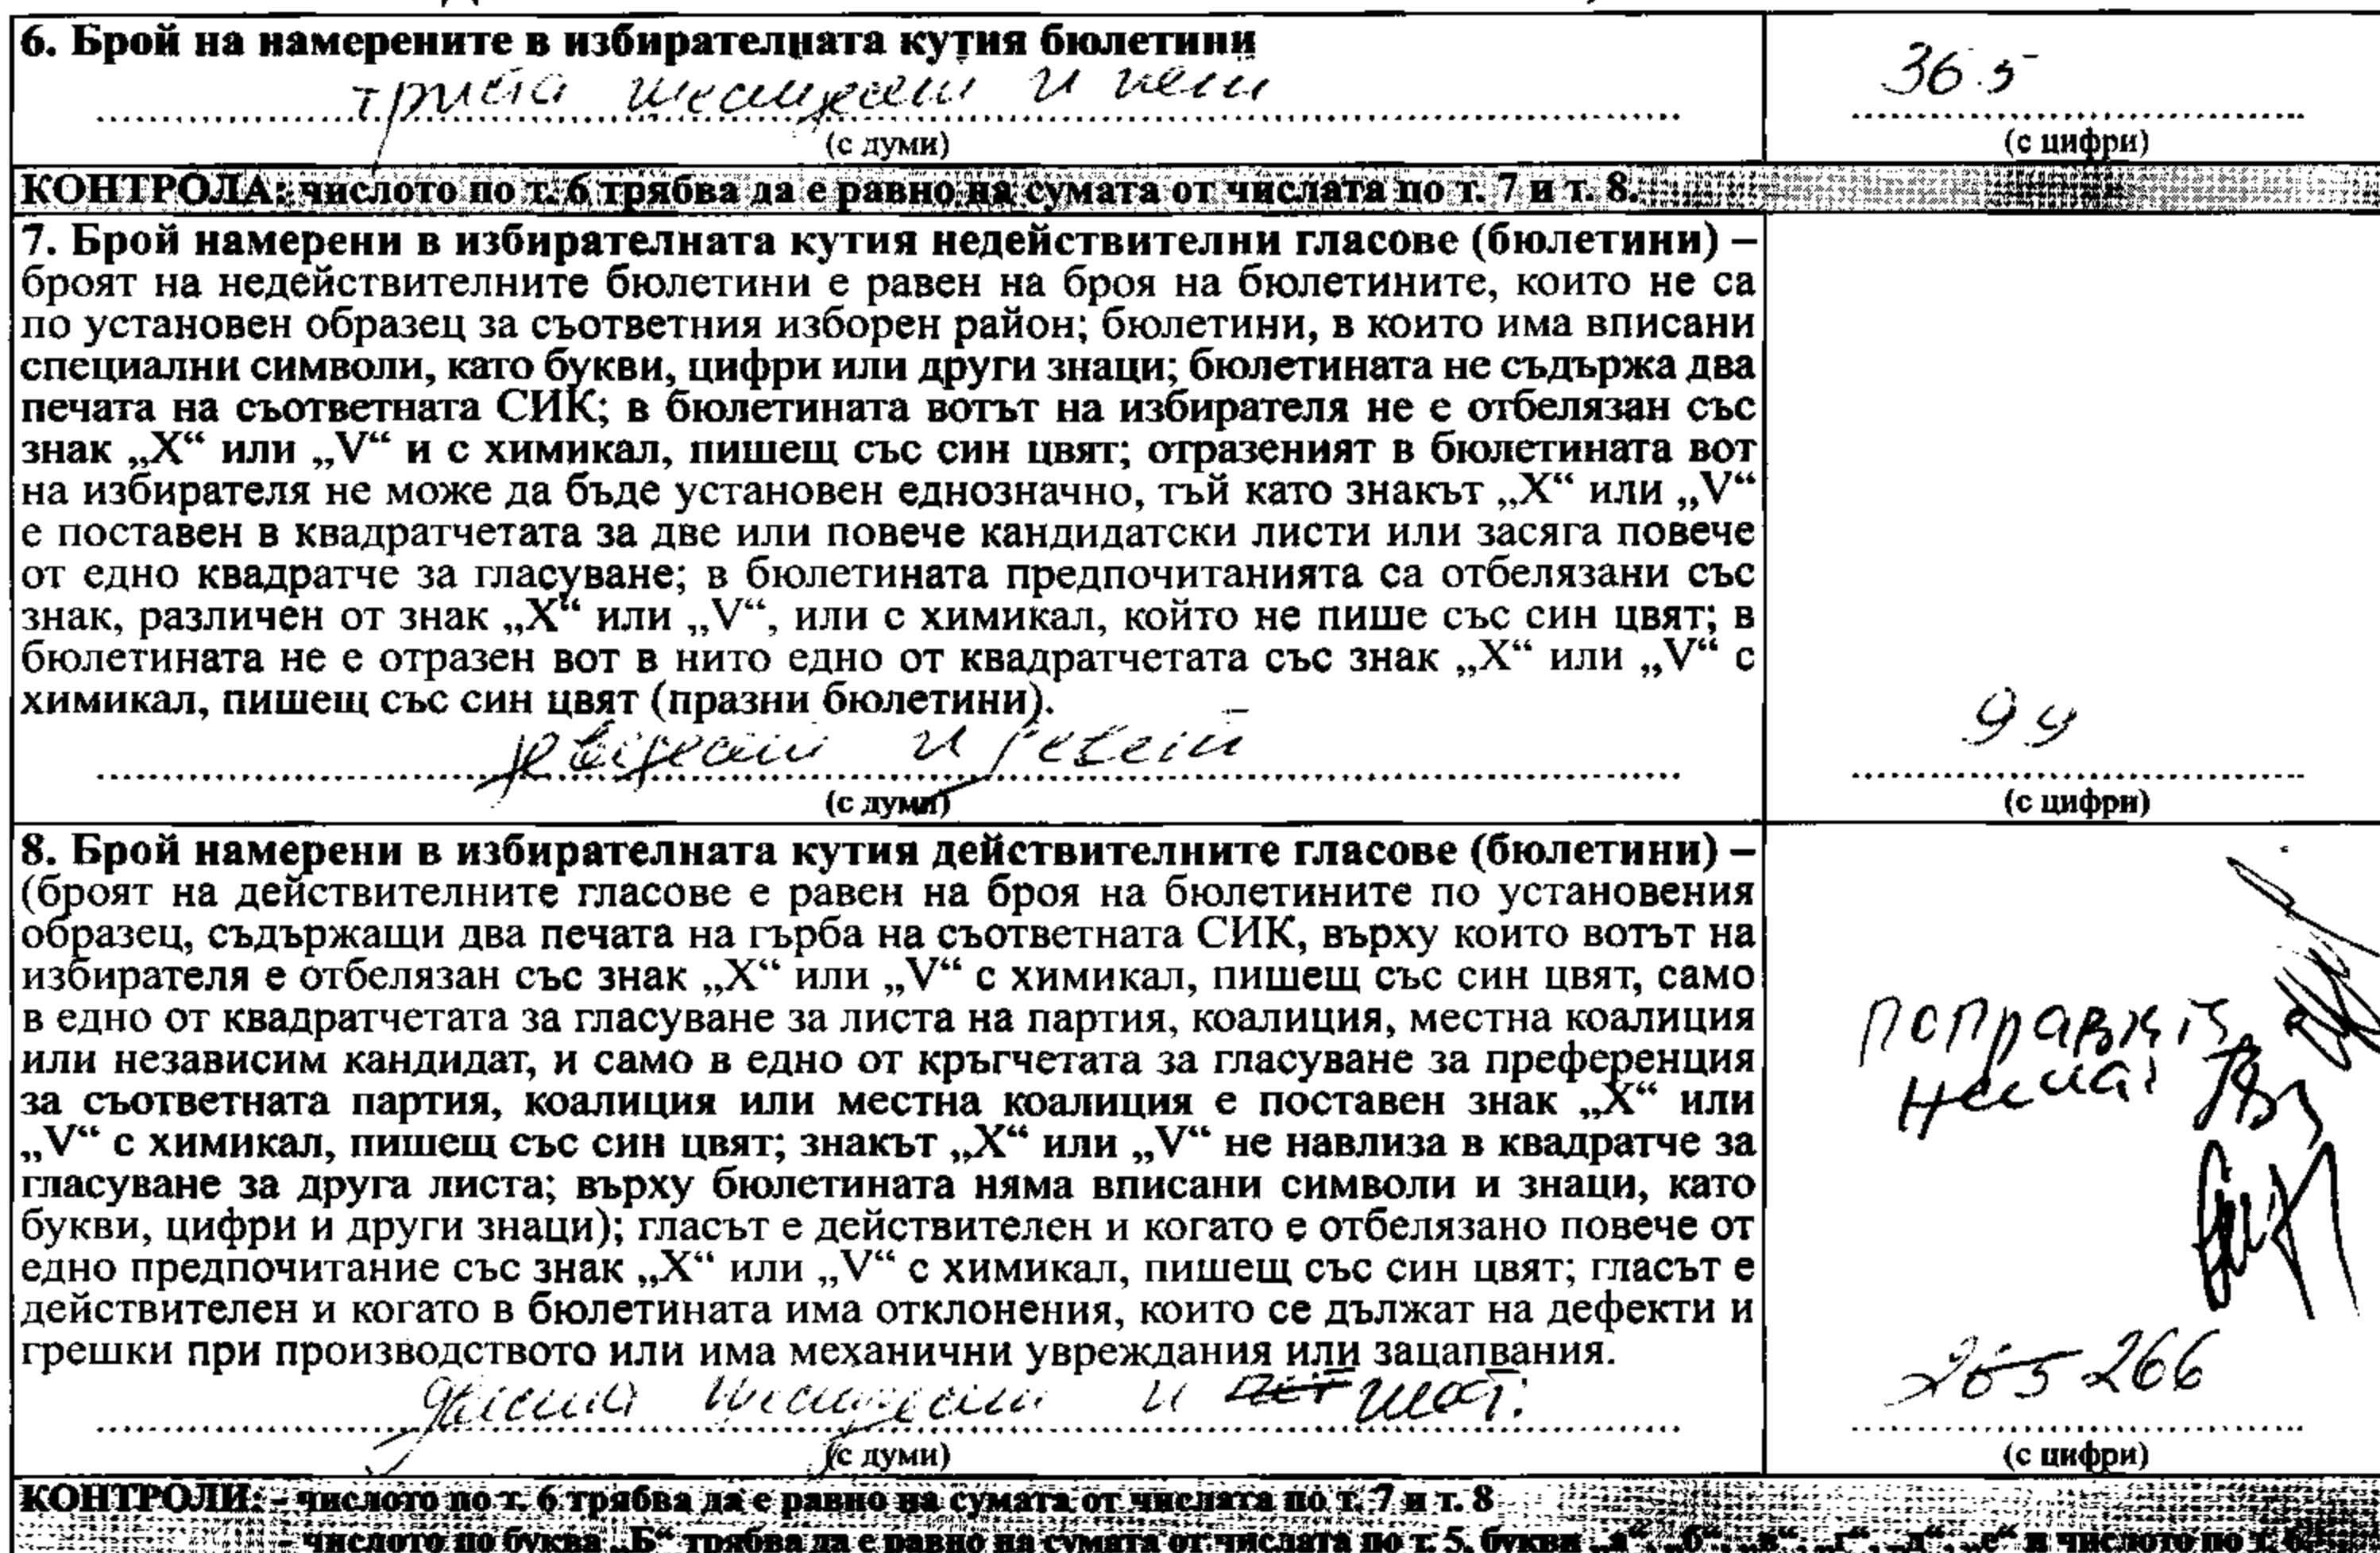 6. Брой на намерените в избирателната кутия бюлетини
триста шестдесет и пет
365
(с думи)
(с цифри)
КОНТРОЛА: числото по т. 6 трябва да е равно на сумата от числата по т. 7 и т. 8.
7. Брой намерени в избирателната кутия недействителни гласове (бюлетини) –
броят на недействителните бюлетини е равен на броя на бюлетините, които не са
по установен образец за съответния изборен район; бюлетини, в които има вписани
специални символи, като букви, цифри или други знаци; бюлетината не съдържа два
печата на съответната СИК; в бюлетината вотът на избирателя не е отбелязан със
знак „X“ или „V“ и с химикал, пишещ със син цвят; отразеният в бюлетината вот
на избирателя не може да бъде установен еднозначно, тъй като знакът „X“ или „V“
е поставен в квадратчетата за две или повече кандидатски листи или засяга повече
от едно квадратче за гласуване; в бюлетината предпочитанията са отбелязани със
знак, различен от знак „X“ или „V“, или с химикал, който не пише със син цвят; в
бюлетината не е отразен вот в нито едно от квадратчетата със знак „X“ или „V“ с
химикал, пишещ със син цвят (празни бюлетини).
и девет
99
(с думи)
(с цифри)
8. Брой намерени в избирателната кутия действителните гласове (бюлетини) –
(броят на действителните гласове е равен на броя на бюлетините по установения
образец, съдържащи два печата на гърба на съответната СИК, върху които вотът на
избирателя е отбелязан със знак „X“ или „V“ с химикал, пишещ със син цвят, само
в едно от квадратчетата за гласуване за листа на партия, коалиция, местна коалиция
или независим кандидат, и само в едно от кръгчетата за гласуване за преференция
за съответната партия, коалиция или местна коалиция е поставен знак „X“ или
„V“ с химикал, пишещ със син цвят; знакът „X“ или „V“ не навлиза в квадратче за
гласуване за друга листа; върху бюлетината няма вписани символи и знаци, като
букви, цифри и други знаци); гласът е действителен и когато е отбелязано повече от
едно предпочитание със знак „X“ или „V“ с химикал, пишещ със син цвят; гласът е
действителен и когато в бюлетината има отклонения, които се дължат на дефекти и
грешки при производството или има механични увреждания или зацапвания.
поправки
двеста шестдесет и пет шест.
265 266
(с думи)
(с цифри)
КОНТРОЛИ: - числото по т. 6 трябва да е равно на сумата от числата по т. 7 и т. 8
- числото по буква „Б“ трябва да е равно на сумата от числата по т. 5, букви „а“, „б“, „в“, „г“, „д“, „е“ и числото по т. 6